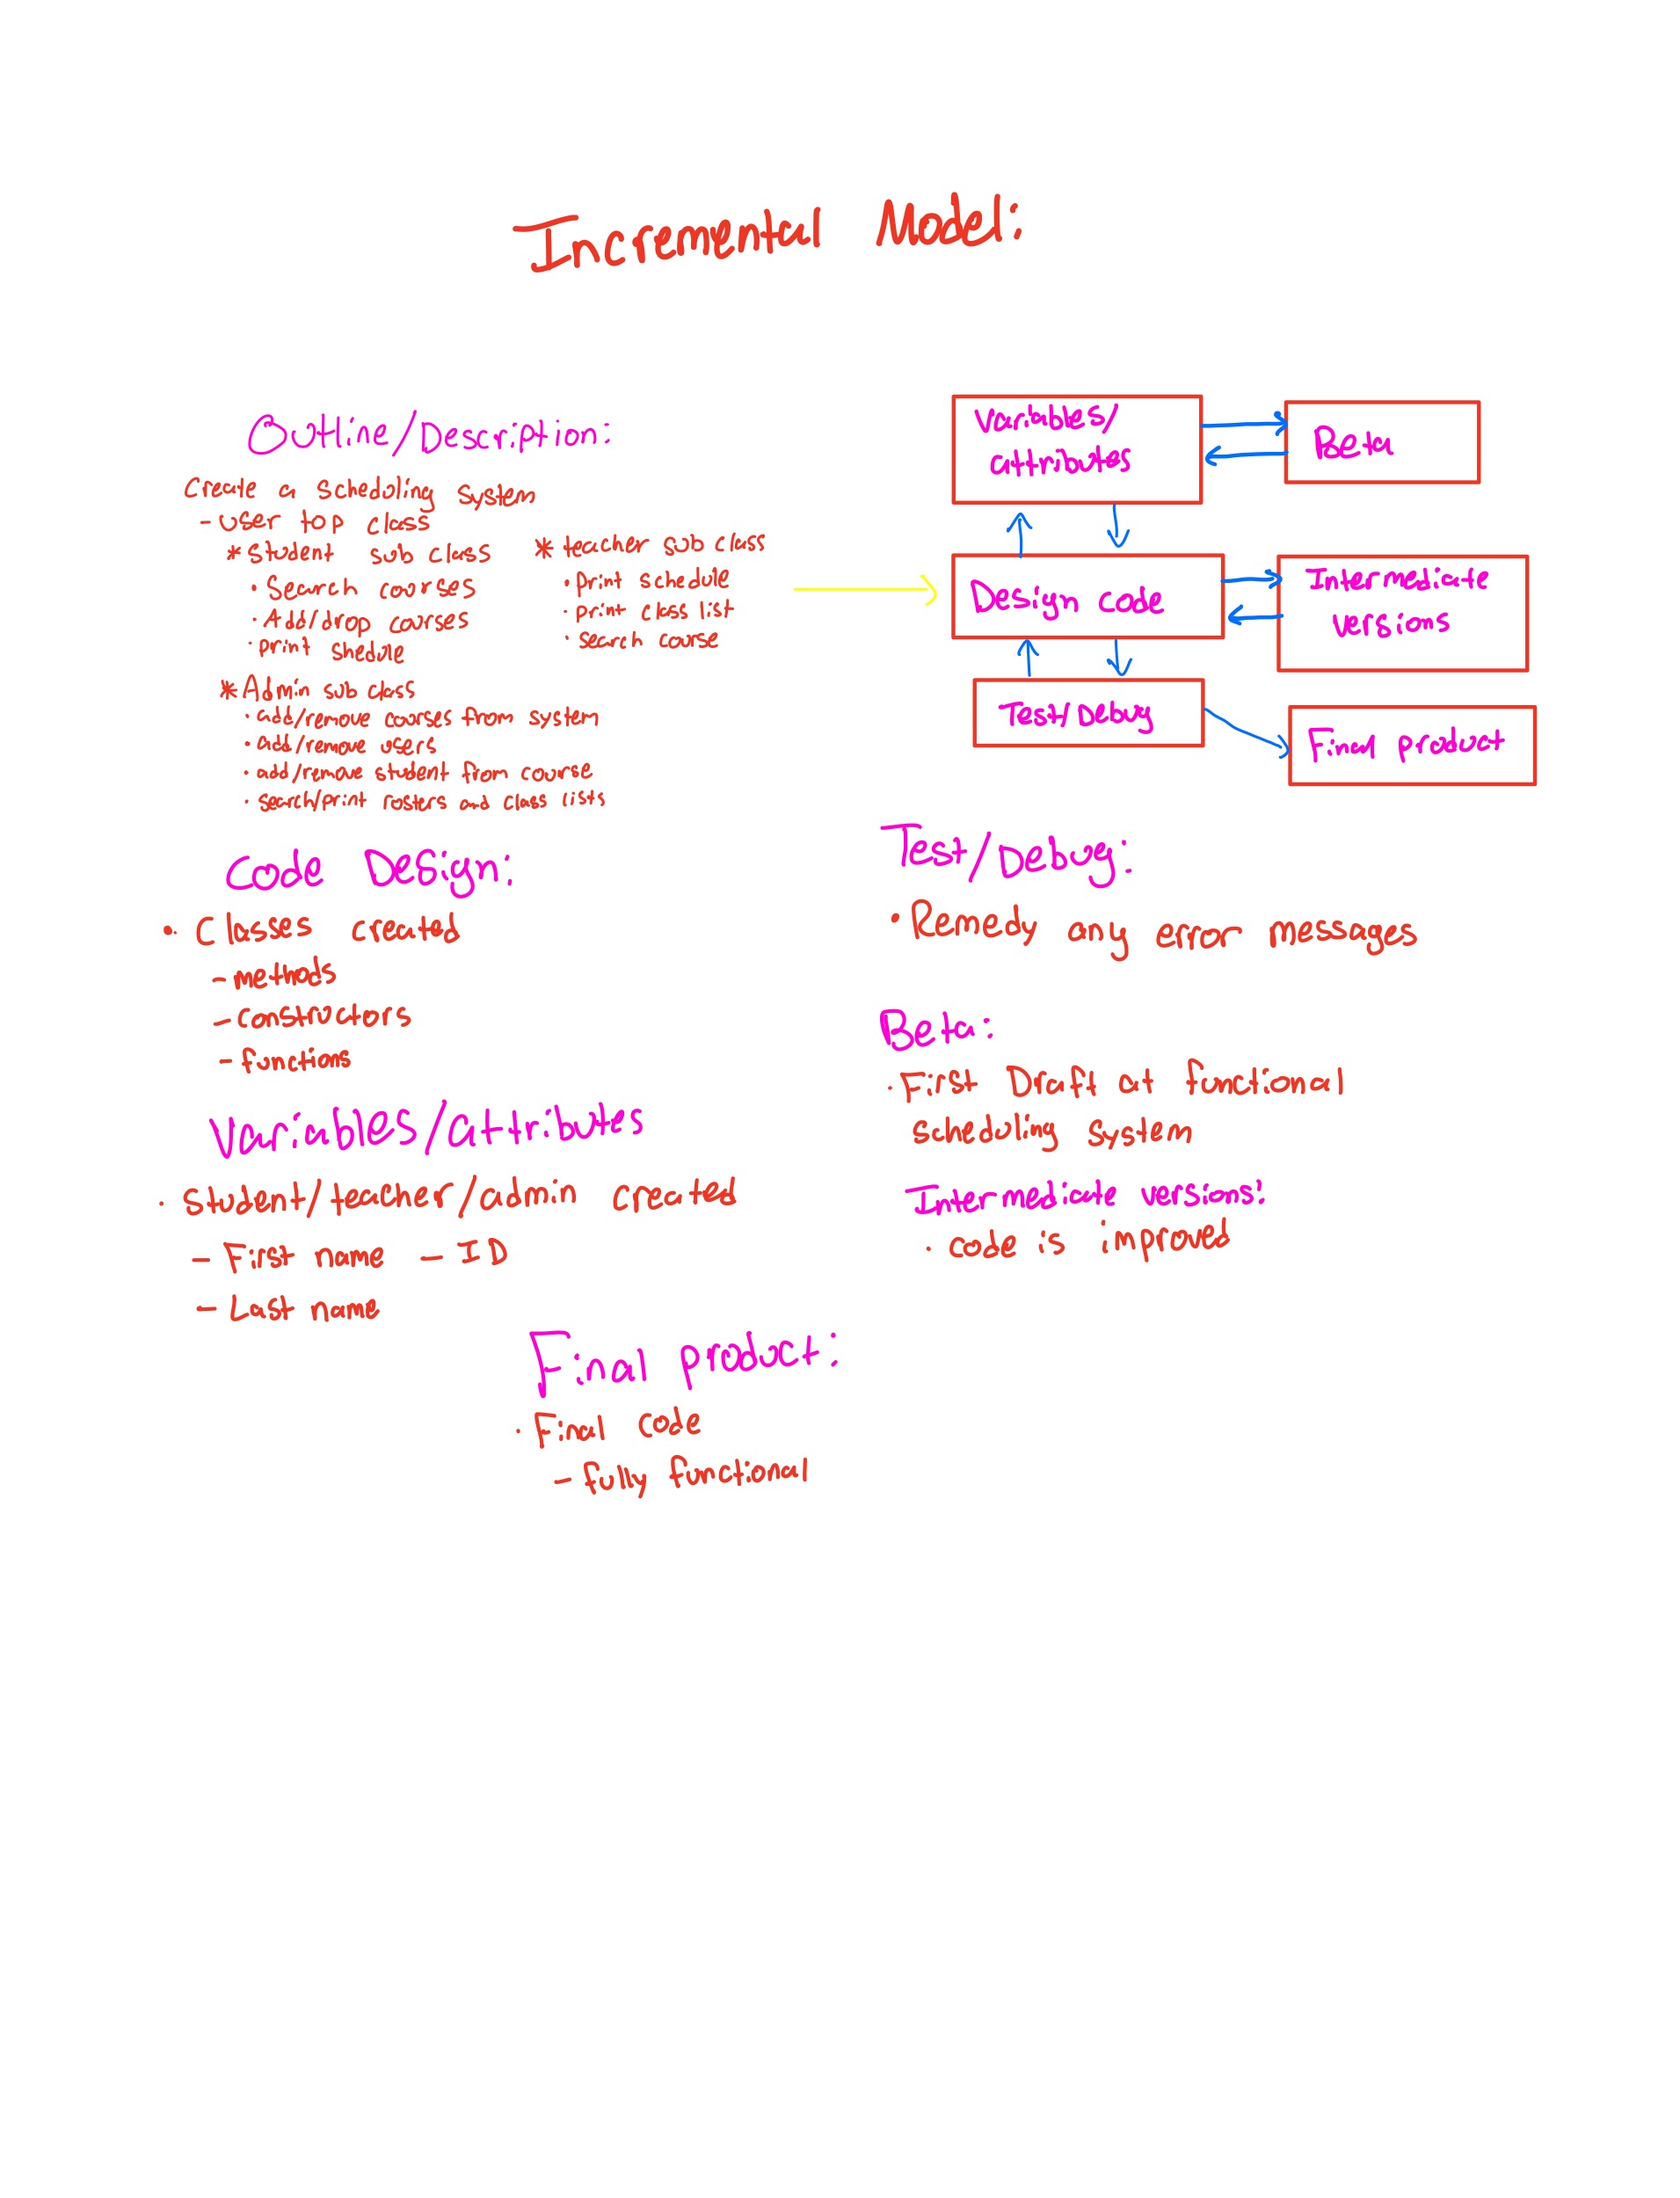 Incremental Model:
Outline/Description:
Create a scheduling system
- user top class
* student sub class
• Search courses
• Add/drop courses
• print shedule
* teacher sub class
• print schedule
• print class list
• search course
* Admin sub class
• add/remove courses from system
• add/remove users
• add/remove student from course
• search/print rosters and class lists
Variables/
attributes
Beta
Design code
Intermediate
versions
Test/Debug
Final product
Code Design:
• Classes created
- methods
- constructors
- functions
Variables/attributes
• student/teacher/admin created
- First name - ID
- Last name
Test/Debug:
• Remedy any error messages
Beta:
• First Draft at functional
scheduling system
Intermediate versions:
• code is improved
Final product:
• Final code
- fully functional